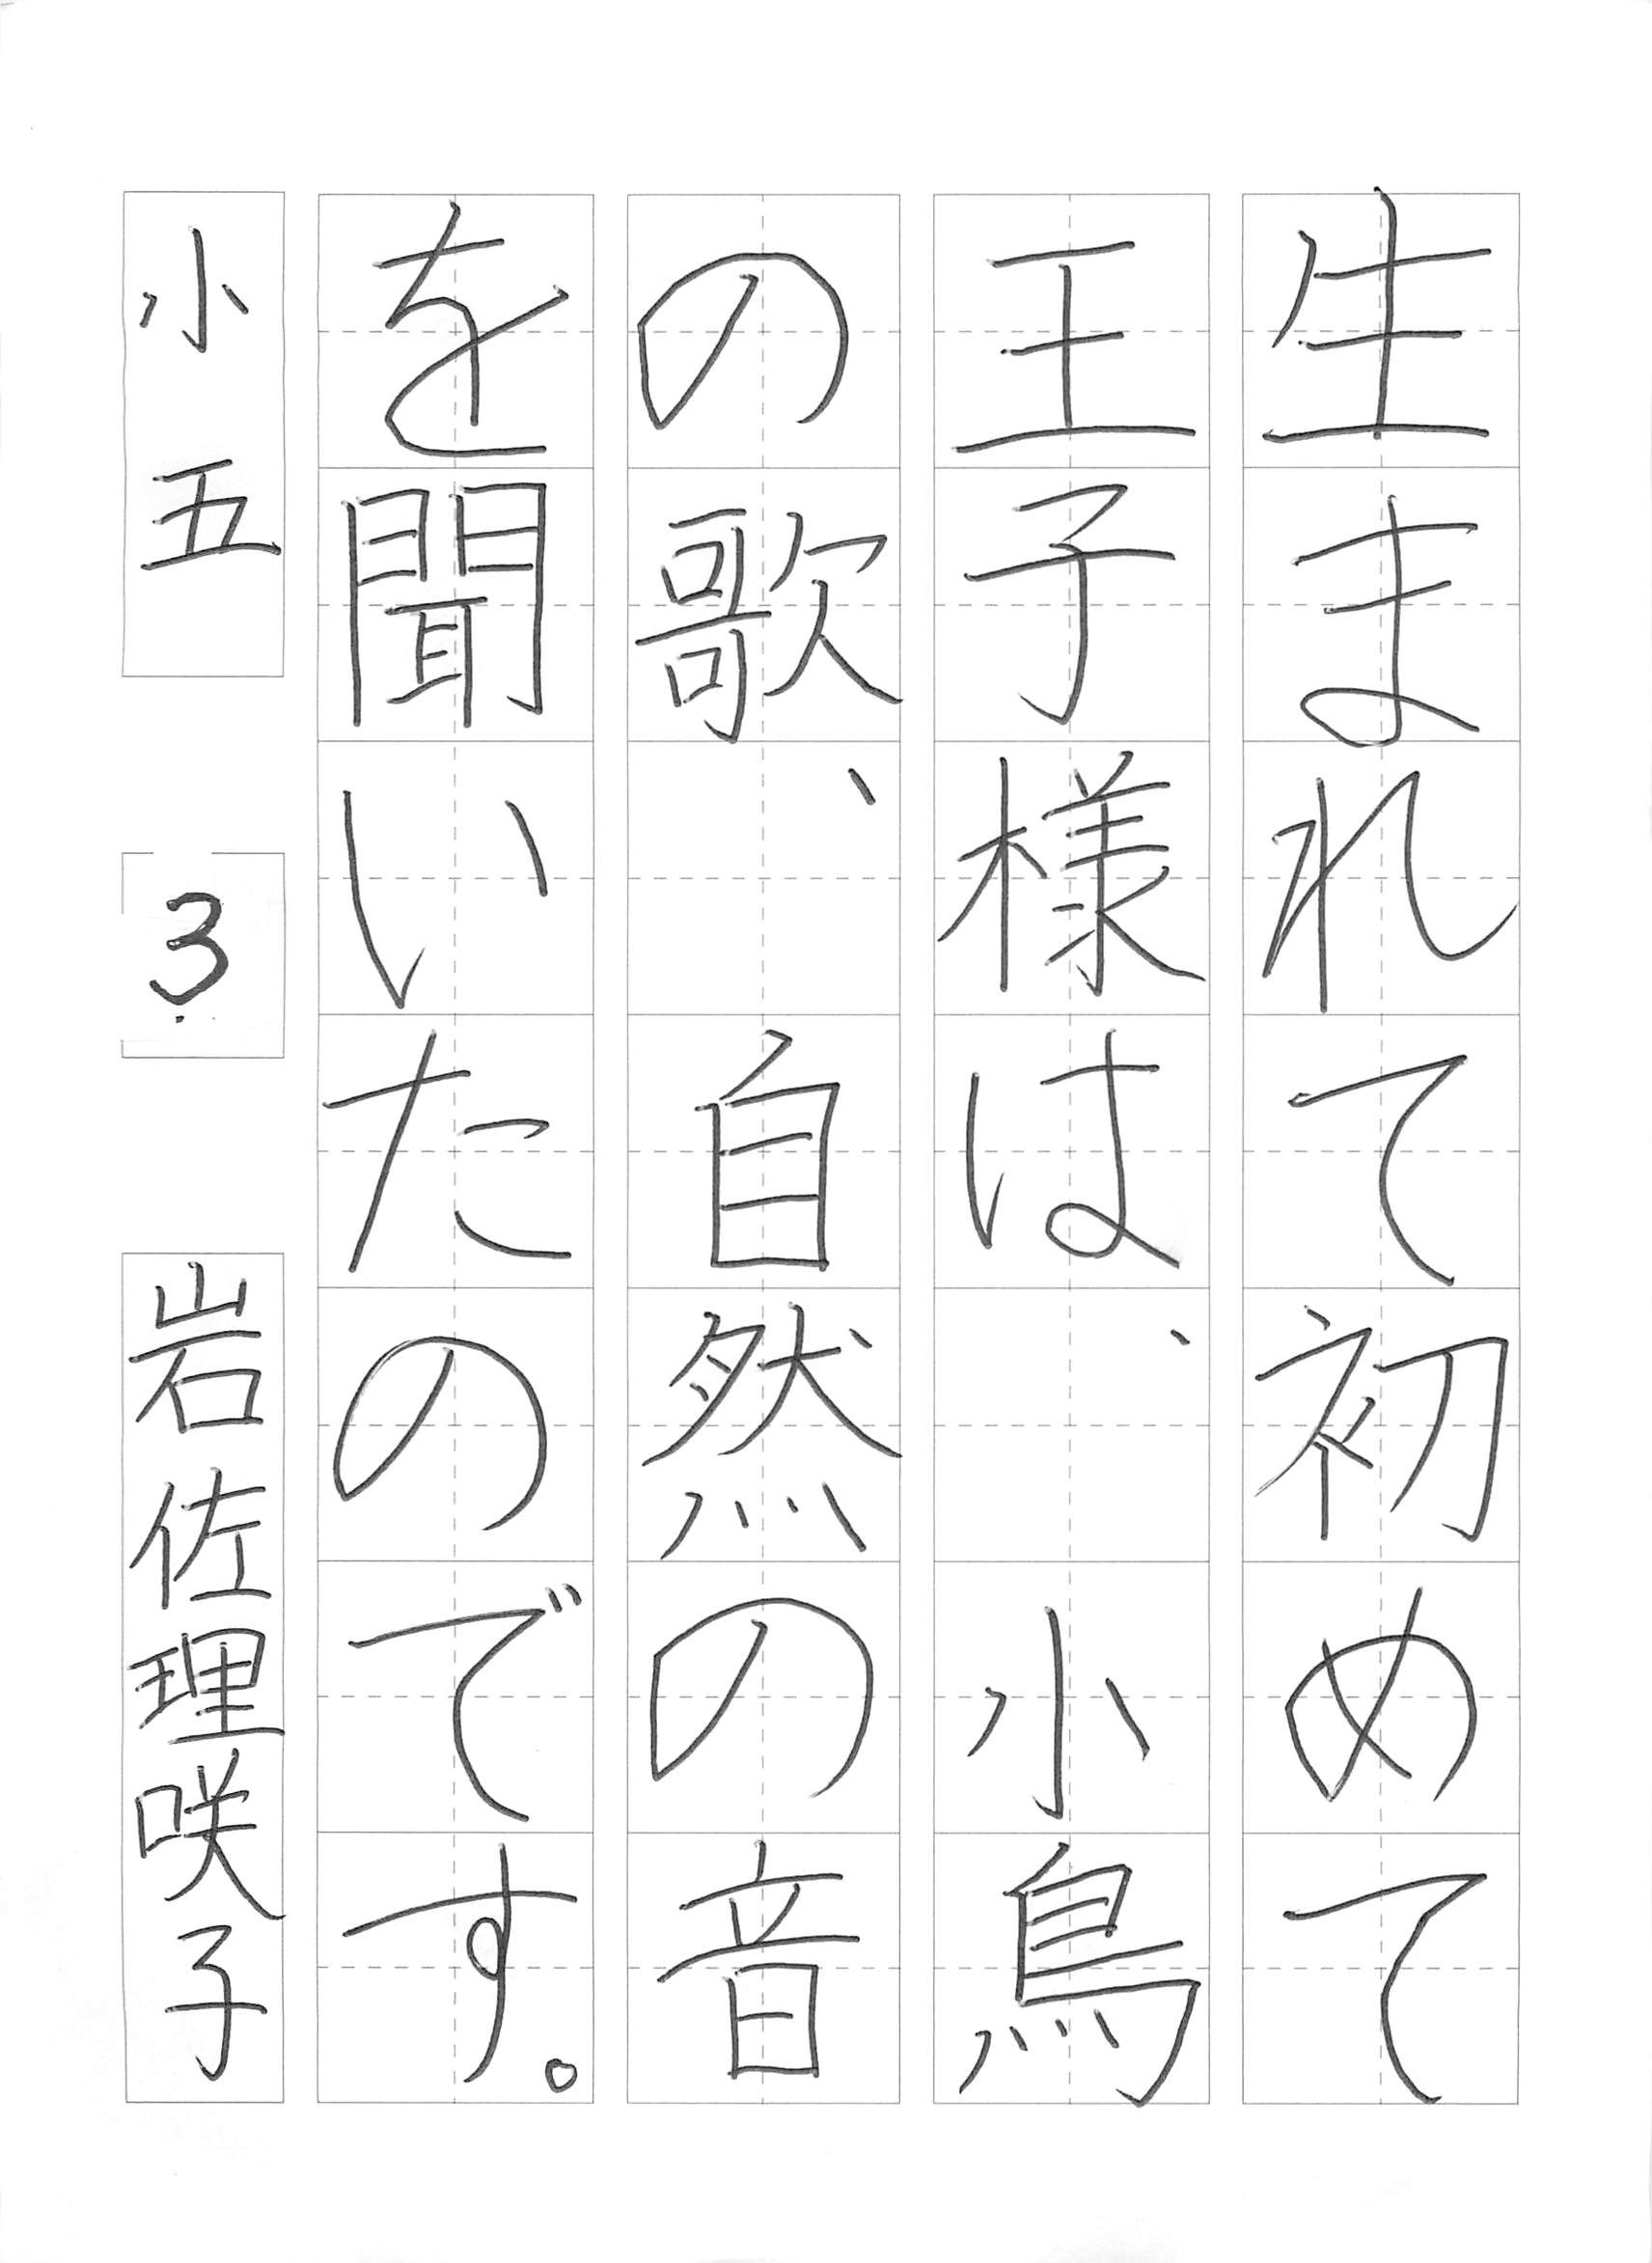 生まれて初めて
王子様は、小鳥
の歌、自然の音
を聞いたのです。
小五 3 岩佐理咲子